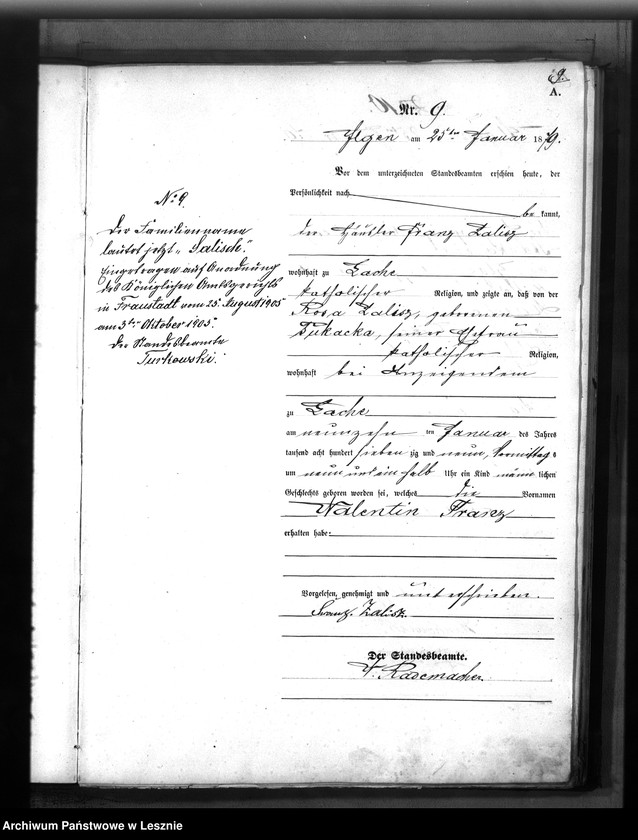 9.
A.
Nr. 9.
Ilgen am 25ten Januar 1879.
Vor dem unterzeichneten Standesbeamten erschien heute, der
Persönlichkeit nach
be kannt,
der Häusler Franz Zalisz
wohnhaft zu Lache
katholischer Religion, und zeigte an, daß von der
Rosa Zalisz, geborenen
Tukacka, seiner Ehefrau
katholischer Religion,
wohnhaft bei Anzeigendem
zu Lache
am neunzehn ten Januar des Jahres
tausend acht hundert sieben zig und neun, Vormittags
um neun und ein halb Uhr ein Kind männ lichen
Geschlechts geboren worden sei, welches die Vornamen
Valentin Franz
erhalten habe.
Vorgelesen, genehmigt und unterschrieben.
Franz Zalisz.
Der Standesbeamte.
Rademacher.
No 9.
Der Familienname
lautet jetzt „Salisch".
Eingetragen auf Anordnung
des Königlichen Amtsgerichts
in Fraustadt vom 25. August 1905
am 3ten Oktober 1905.
Der Standesbeamte
Turkowski.
Archiwum Państwowe w Lesznie